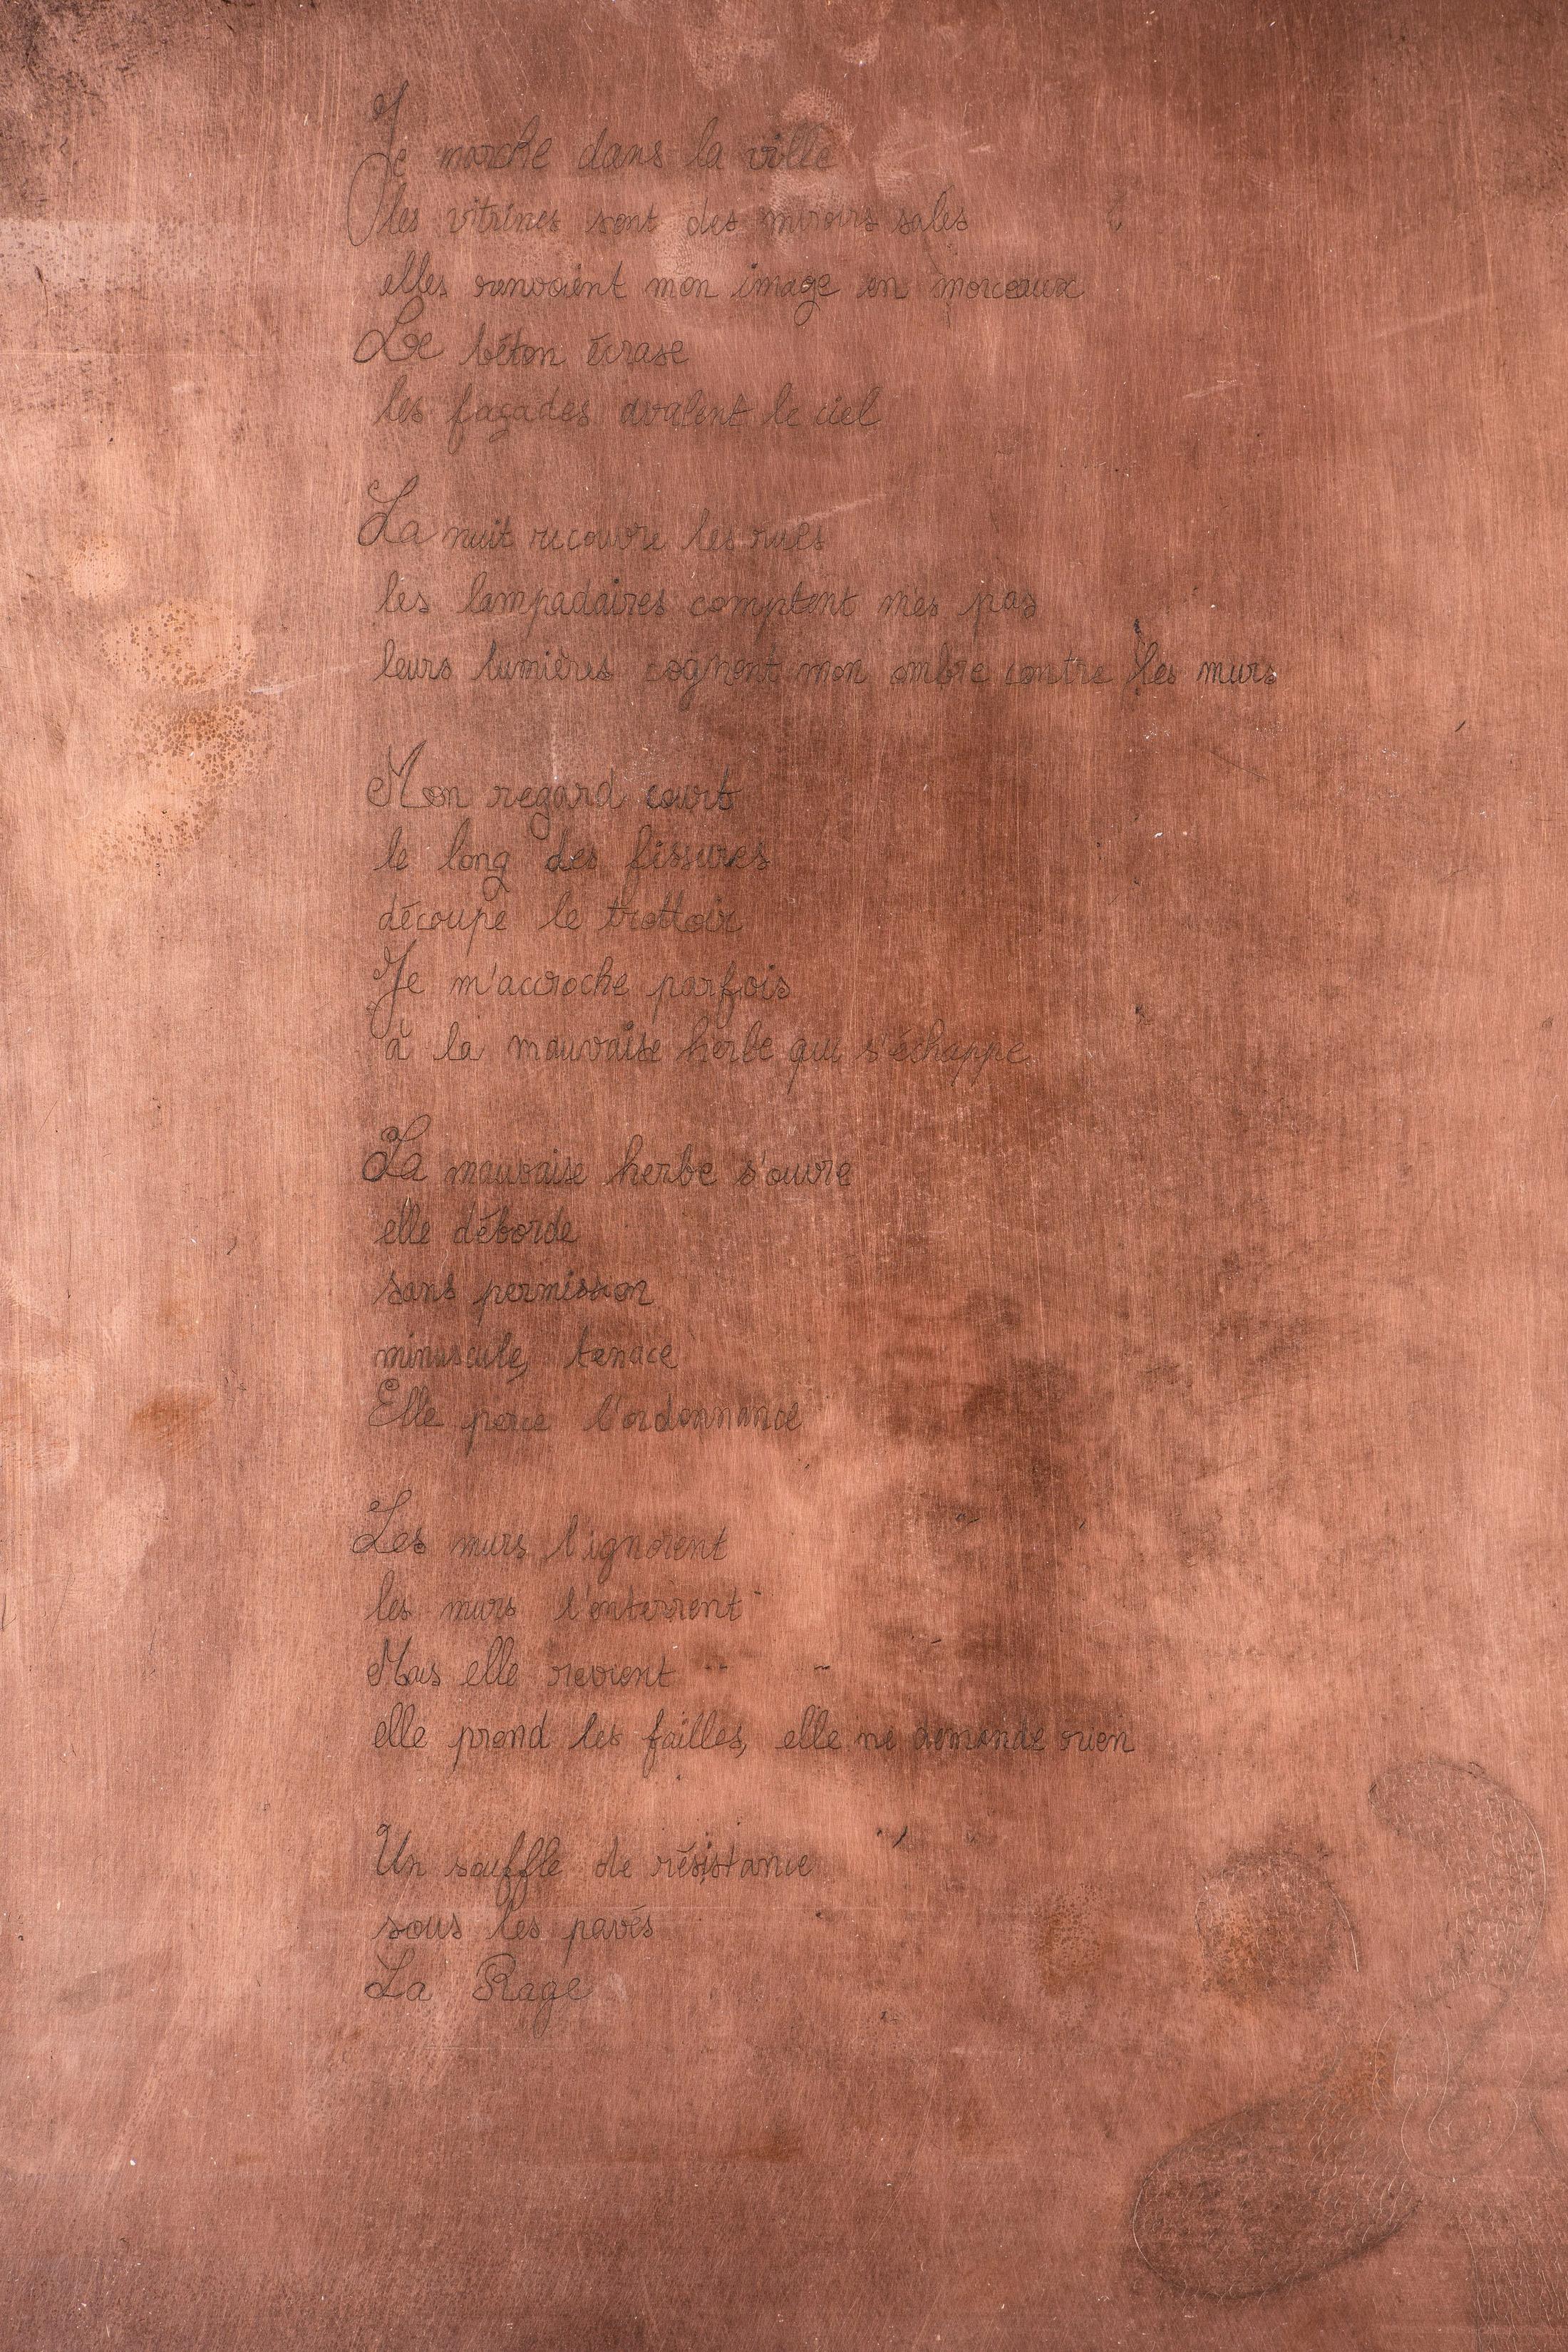 Je marche dans la ville
les vitrines sont des miroirs sales
elles renvoient mon image en morceaux
Le béton écrase
les façades avalent le ciel
La nuit recouvre les rues
les lampadaires comptent mes pas
leurs lumières cognent mon ombre contre les murs
Mon regard court
le long des fissures
découpe le trottoir
Je m'accroche parfois
à la mauvaise herbe qui s'échappe
La mauvaise herbe s'ouvre
elle déborde
sans permission
minuscule, tenace
Elle perce l'ordonnance
Les murs l'ignorent
les murs l'enterrent
Mais elle revient
elle prend les failles, elle ne demande rien
Un souffle de résistance
sous les pavés
La Rage